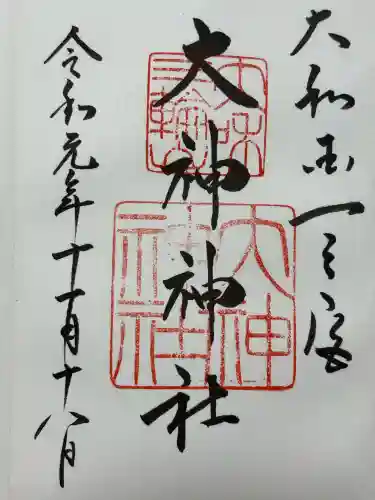 大和国一之宮
大神神社
三輪明神
大神神社
令和元年十一月十八月